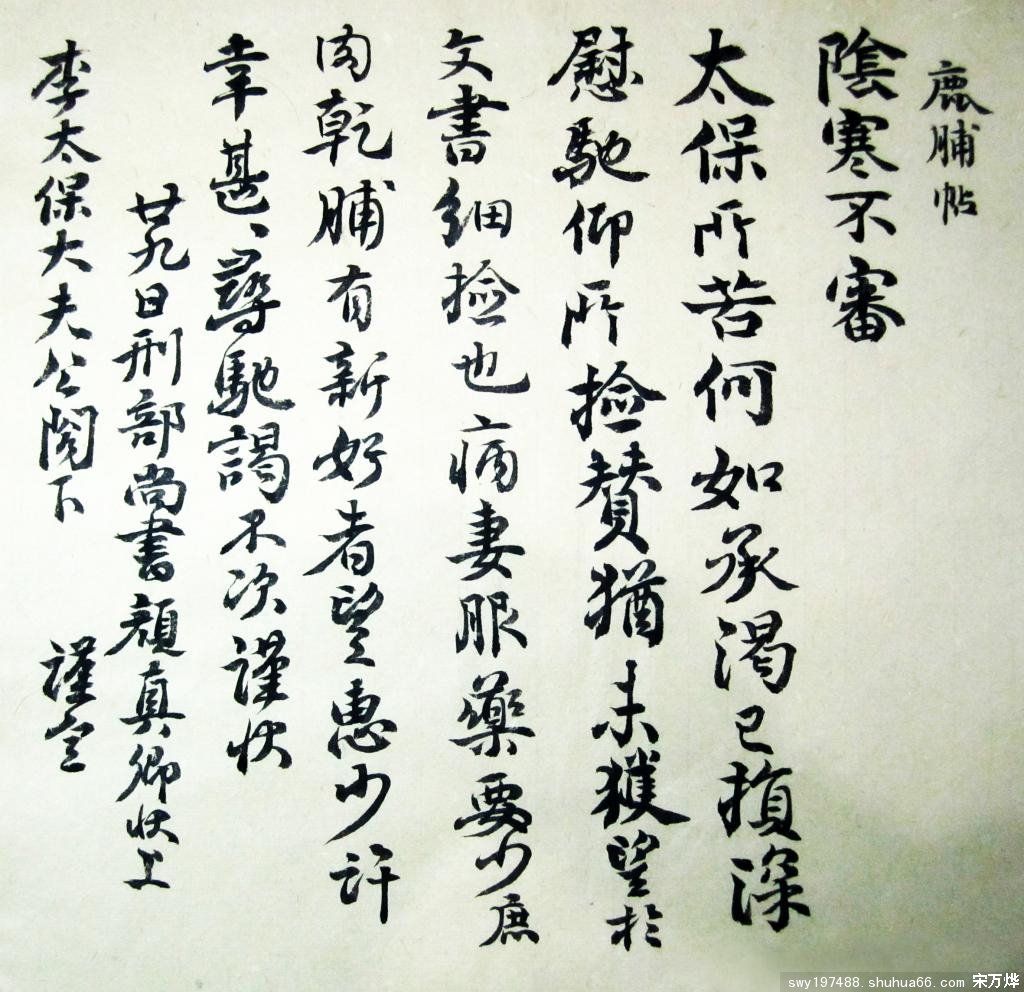 鹿脯帖
陰寒不審
太保所苦何如承渴已損深
慰馳仰所撿贊猶未獲望於
文書細撿也病妻服藥要少鹿
肉乾脯有新好者望惠少許
幸甚、尋馳謁不次謹狀
廿九日刑部尚書顏真卿狀上
李太保大夫公閣下 謹空
swy197488. shuhua66. com 宋万烨